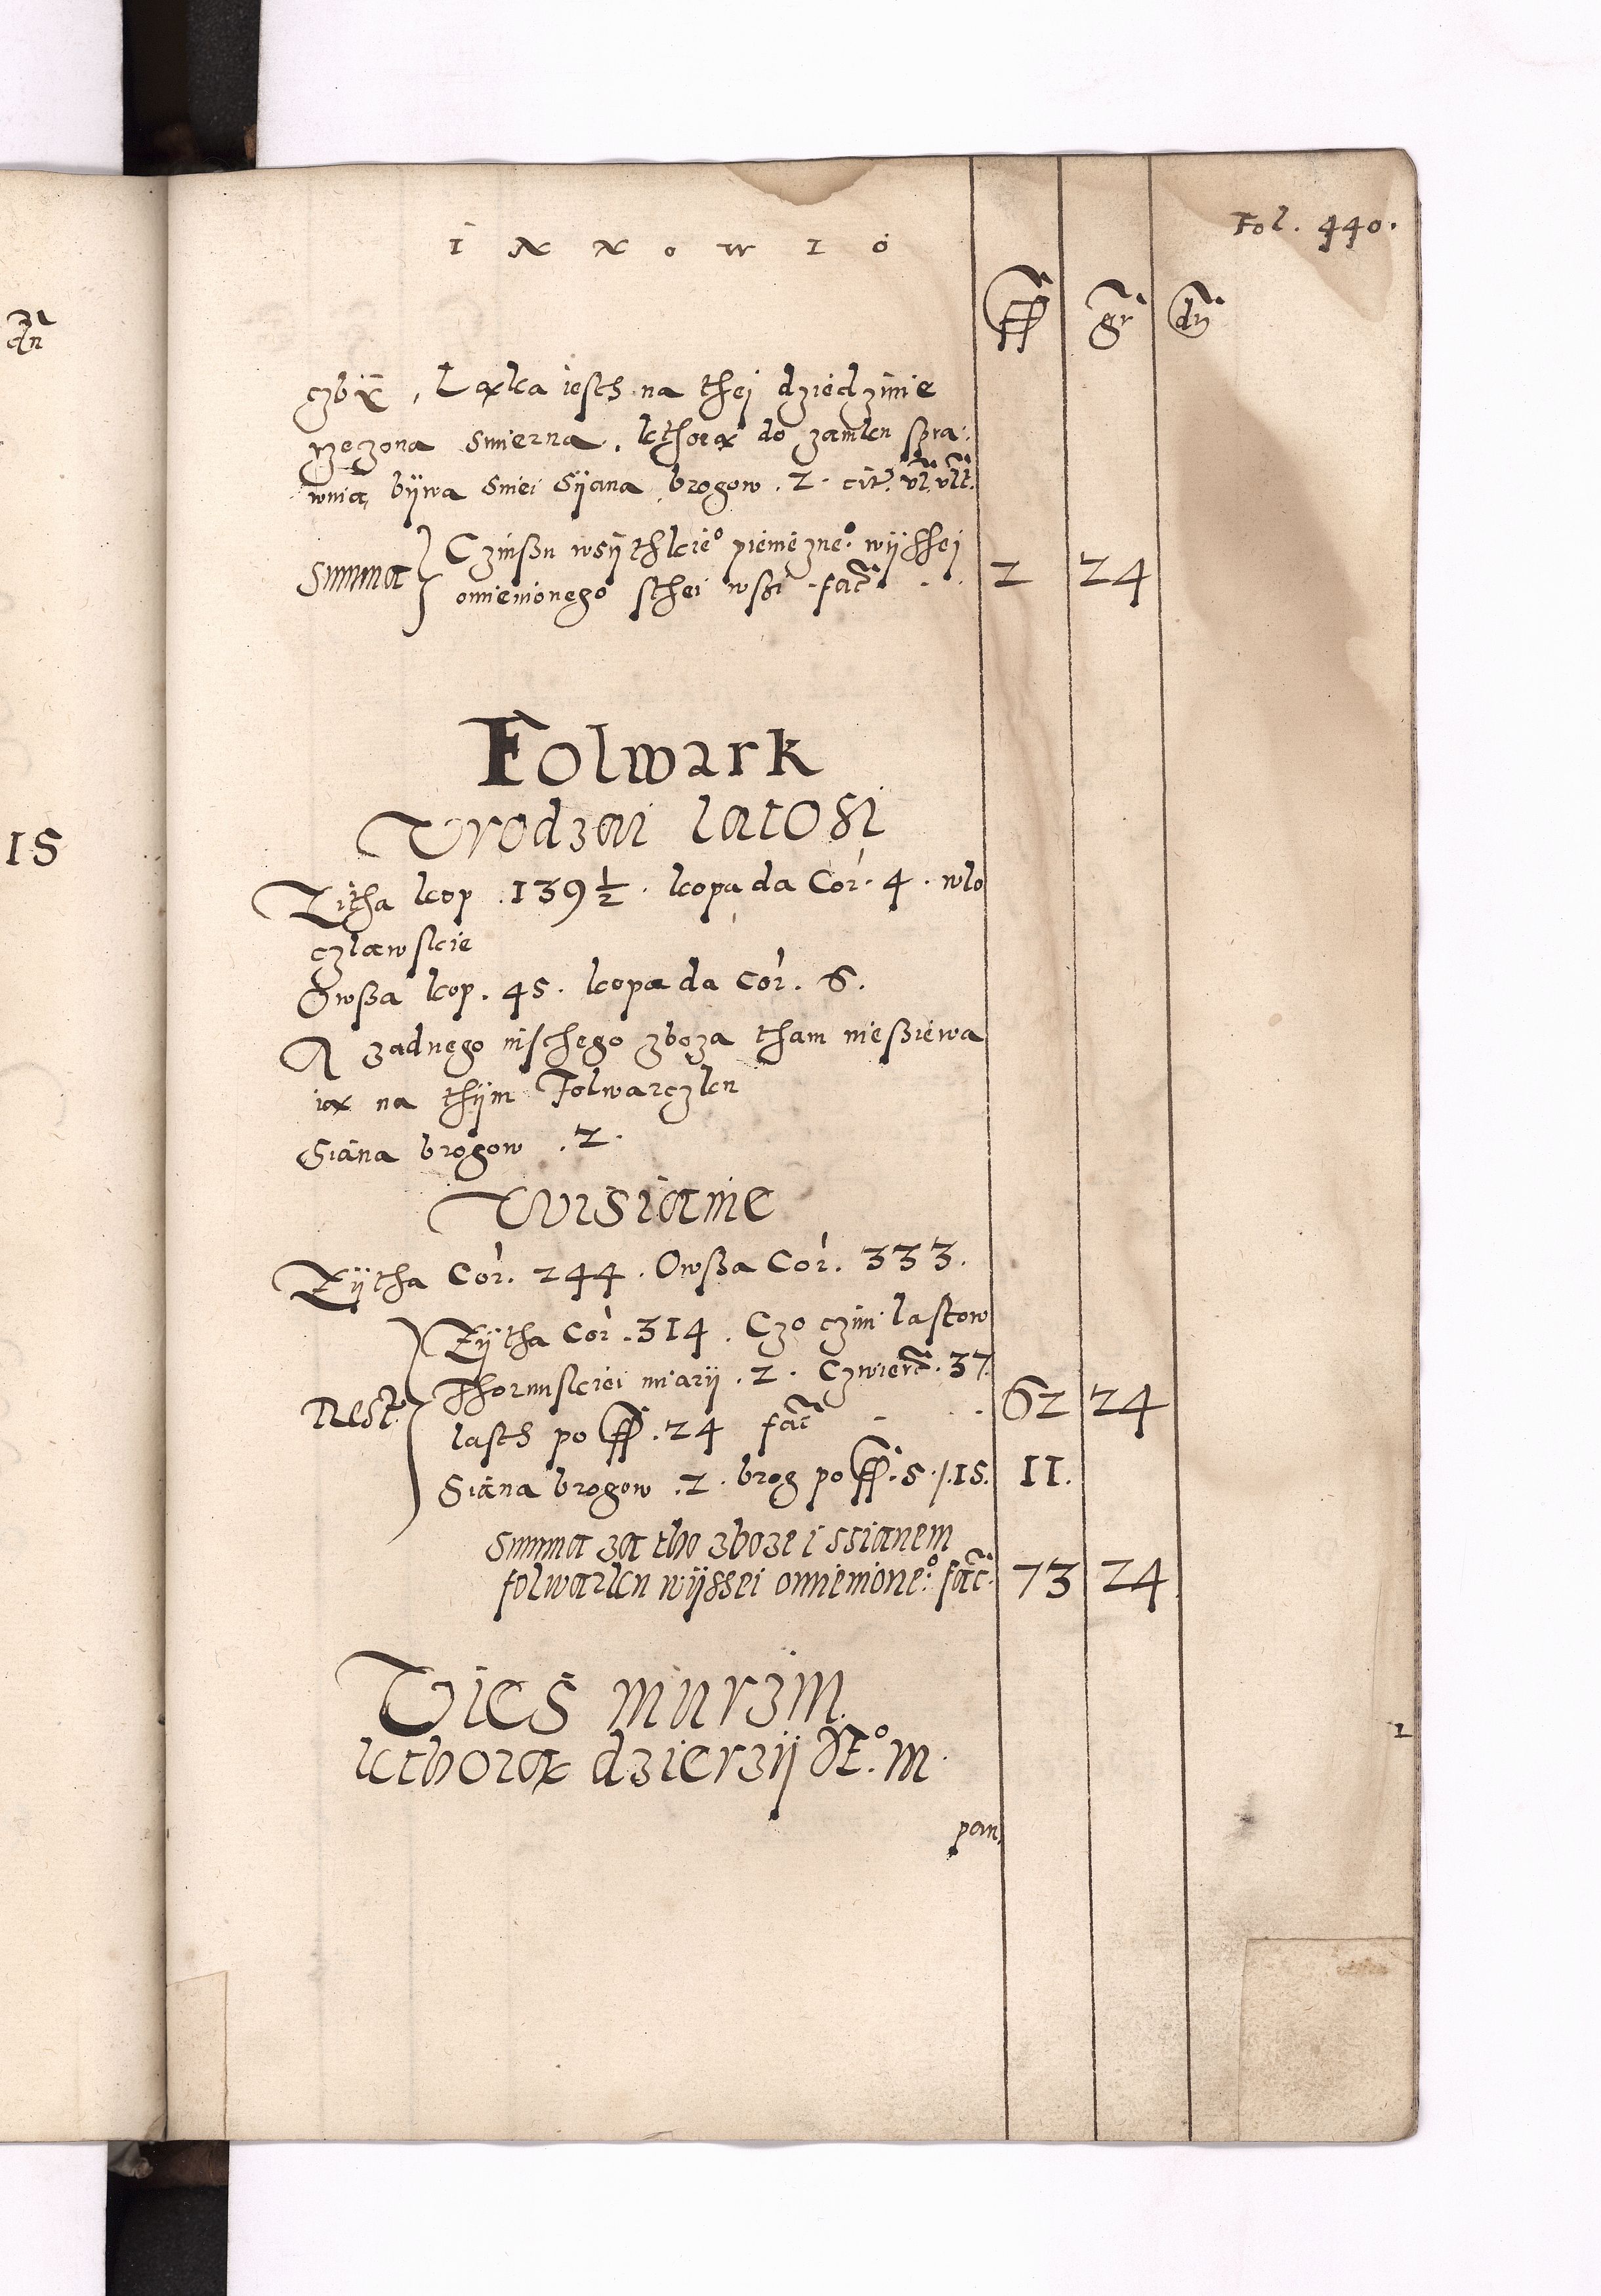 I N N O W I O
Fol. 440.
ff gr dn
czbÿ, Ląka iesth na thei dziedzinie
rzeczona Smierna, kthorą do zamku spra:
wnią bÿwa Sniei Sÿana brogow . 2 .
Summa Czinßu wsÿthkie° pieniezne° wÿssej
omienionego sthei wßi . fac̃ . 2 24
Folwark
Vrodzai latosi
Zitha kop . 139 1/2 . kopa da Cor . 4 . wlo
czlawskie
Owßa kop . 45 . kopa da Cor . 6 .
A zadnego inschego zboza tham nießiewa
ią na thÿm Folwarczku
Siana brogow . 2 .
Vvisianie
Zÿtha Cor . 244 . Owßa Cor . 333 .
Zÿtha Cor . 314 . Czo czini lastow
Thorunskiei miarÿ . 2 . Czwierc̃ . 37
Rest lasth po ff . 24 fac̃ 62 24
Siana brogow . 2 . brog po ff . 5 /. 15 . 11 .
Summa za tho zboze i ssianem
folwarku wÿssei omienione° fac̃ . 73 24
Vies murzin
kthorą dzierzÿ N° m .
pan
dn
15